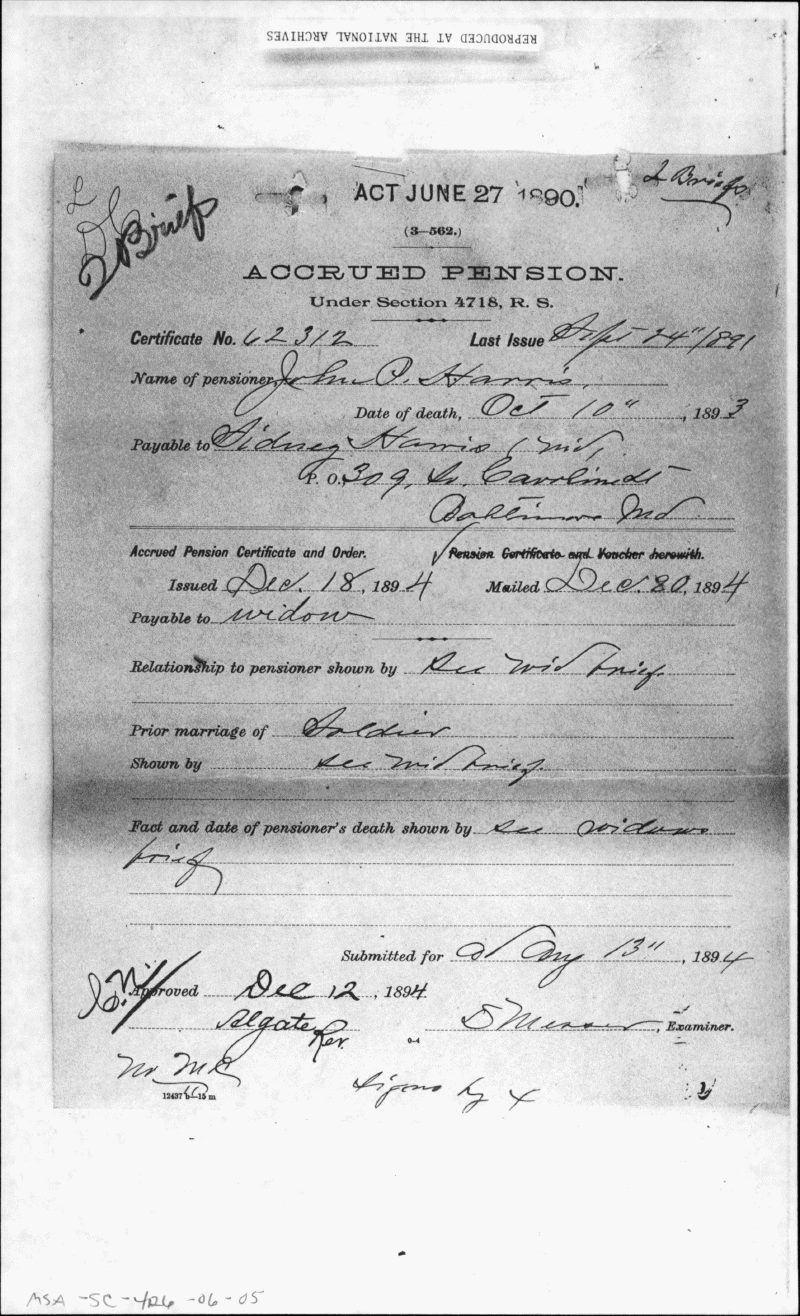 REPRODUCED AT THE NATIONAL ARCHIVES
2 Briefs
2 Briefs
ACT JUNE 27 1890.
(3—562.)
ACCRUED PENSION.
Under Section 4718, R. S.
Certificate No. 62312 Last Issue Sept 24" 1891
Name of pensioner, John P. Harris,
Date of death, Oct 10", 1893
Payable to Sidney Harris, wid,
P. O. 309, So. Caroline St
Baltimore Md
Accrued Pension Certificate and Order. Pension Certificate and Voucher herewith.
Issued Dec. 18, 1894 Mailed Dec. 20, 1894
Payable to widow
Relationship to pensioner shown by see wid brief.
Prior marriage of Soldier
Shown by see wid brief.
Fact and date of pensioner's death shown by see widows
brief
Submitted for Aug 13", 1894
Approved Dec 12, 1894
Algate Rev. , Examiner.
No MC
signs by X
12437 b—15 m
MSA-SC-4126-06-05